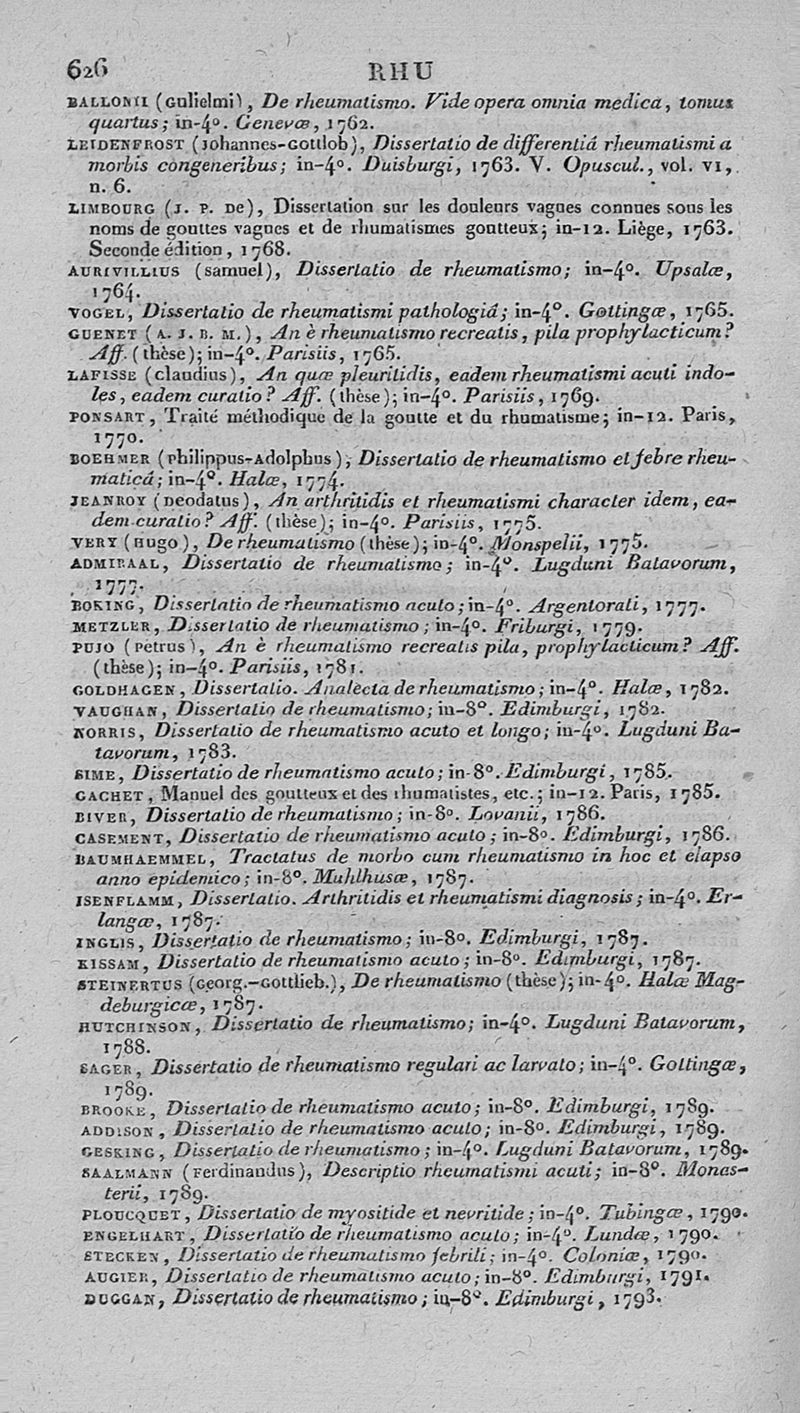 626 RHU
BALLONII (Gulielmi), De rheumatismo. Vide opera omnia medica, tomus
quartus; in-4°. Genevæ, 1762.
LEIDENFROST (Johannes-Gottlob), Dissertatio de differentiâ rheumatismi a
morbis congeneribus; in-4°. Duisburgi, 1763. V. Opuscul., vol. VI,
n. 6.
LIMBOURG (J. P. De), Dissertation sur les douleurs vagues connues sous les
noms de gouttes vagues et de rhumatismes goutteux; in-12. Liège, 1763.
Seconde édition, 1768.
AURIVILLIUS (Samuel), Dissertatio de rheumatismo; in-4°. Upsalæ,
1764.
VOGEL, Dissertatio de rheumatismi pathologiâ; in-4°. Gottingæ, 1765.
GUENET (A. J. B. M.), An è rheumatismo recreatis, pila prophylacticum?
Aff. (thèse); in-4°. Parisiis, 1765.
LAFISSE (Claudius), An quæ pleuritidis, eadem rheumatismi acuti indo-
les, eadem curatio? Aff. (thèse); in-4°. Parisiis, 1769.
PONSART, Traité méthodique de la goutte et du rhumatisme; in-12. Paris,
1770.
BOEHMER (Philippus-Adolphus), Dissertatio de rheumatismo et febre rheu-
maticâ; in-4°. Halæ, 1774.
JEANROY (Deodatus), An arthritidis et rheumatismi character idem, ea-
dem curatio? Aff. (thèse); in-4°. Parisiis, 1775.
VERY (Hugo), De rheumatismo (thèse); in-4°. Monspelii, 1775.
ADMIRAAL, Dissertatio de rheumatismo; in-4°. Lugduni Batavorum,
1777.
BOKING, Dissertatio de rheumatismo acuto; in-4°. Argentorati, 1777.
METZLER, Dissertatio de rheumatismo; in-4°. Friburgi, 1779.
PUJO (Petrus), An è rheumatismo recreatis pila, prophylacticum? Aff.
(thèse); in-4°. Parisiis, 1781.
GOLDHAGEN, Dissertatio. Analecta de rheumatismo; in-4°. Halæ, 1782.
VAUGHAN, Dissertatio de rheumatismo; in-8°. Edimburgi, 1782.
NORRIS, Dissertatio de rheumatismo acuto et longo; in-4°. Lugduni Ba-
tavorum, 1783.
SIME, Dissertatio de rheumatismo acuto; in-8°. Edimburgi, 1785.
GACHET, Manuel des goutteux et des rhumatistes, etc.; in-12. Paris, 1785.
BIVER, Dissertatio de rheumatismo; in-8°. Lovanii, 1786.
CASEMENT, Dissertatio de rheumatismo acuto; in-8°. Edimburgi, 1786.
BAUMHAEMMEL, Tractatus de morbo cum rheumatismo in hoc et elapso
anno epidemico; in-8°. Muhlhusæ, 1787.
ISENFLAMM, Dissertatio. Arthritidis et rheumatismi diagnosis; in-4°. Er-
langæ, 1787.
INGLIS, Dissertatio de rheumatismo; in-8°. Edimburgi, 1787.
KISSAM, Dissertatio de rheumatismo acuto; in-8°. Edimburgi, 1787.
STEINERTUS (Georg.-Gottlieb.), De rheumatismo (thèse); in-4°. Halæ Mag-
deburgicæ, 1787.
HUTCHINSON, Dissertatio de rheumatismo; in-4°. Lugduni Batavorum,
1788.
SAGER, Dissertatio de rheumatismo regulari ac larvato; in-4°. Gottingæ,
1789.
BROOKE, Dissertatio de rheumatismo acuto; in-8°. Edimburgi, 1789.
ADDISON, Dissertatio de rheumatismo acuto; in-8°. Edimburgi, 1789.
GESKING, Dissertatio de rheumatismo; in-4°. Lugduni Batavorum, 1789.
SAALMANN (Ferdinandus), Descriptio rheumatismi acuti; in-8°. Monas-
terii, 1789.
PLOUCQUET, Dissertatio de myositide et nevritide; in-4°. Tubingæ, 1790.
ENGELHART, Dissertatio de rheumatismo acuto; in-4°. Lundæ, 1790.
STECKEN, Dissertatio de rheumatismo febrili; in-4°. Coloniæ, 1790.
AUGIER, Dissertatio de rheumatismo acuto; in-8°. Edimburgi, 1791.
DUGGAN, Dissertatio de rheumatismo; in-8°. Edimburgi, 1793.